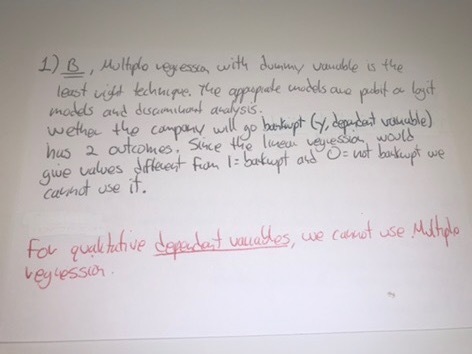 1) B, Multiple regression with dummy variable is the
least right technique. The appropriate models are probit or logit
models and discriminant analysis.
Wether the company will go bankrupt (y, dependent variable)
has 2 outcomes. Since the linear regression would
give values different from 1 = bankrupt and 0 = not bankrupt we
cannot use it.
For qualitative dependent variables, we cannot use Multiple
regression.